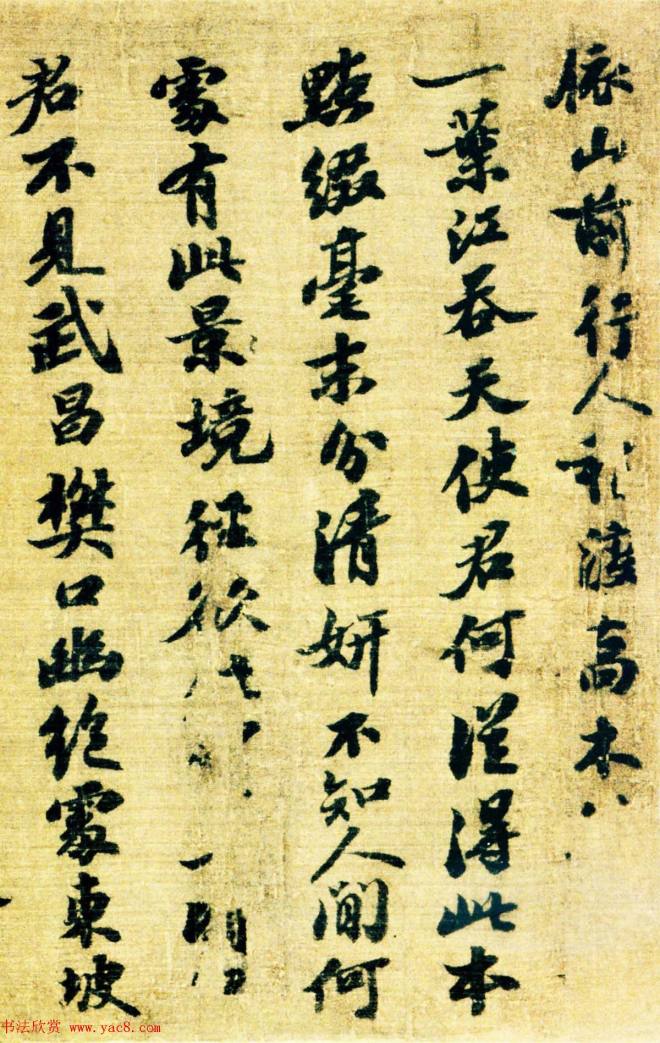 依山前行人稍渡高木
一葉江吞天使君何從得此本
點綴毫末分清妍不知人間何
處有此景境徑欲
君不見武昌樊口幽絕處東坡
书法欣赏 www.yac8.com